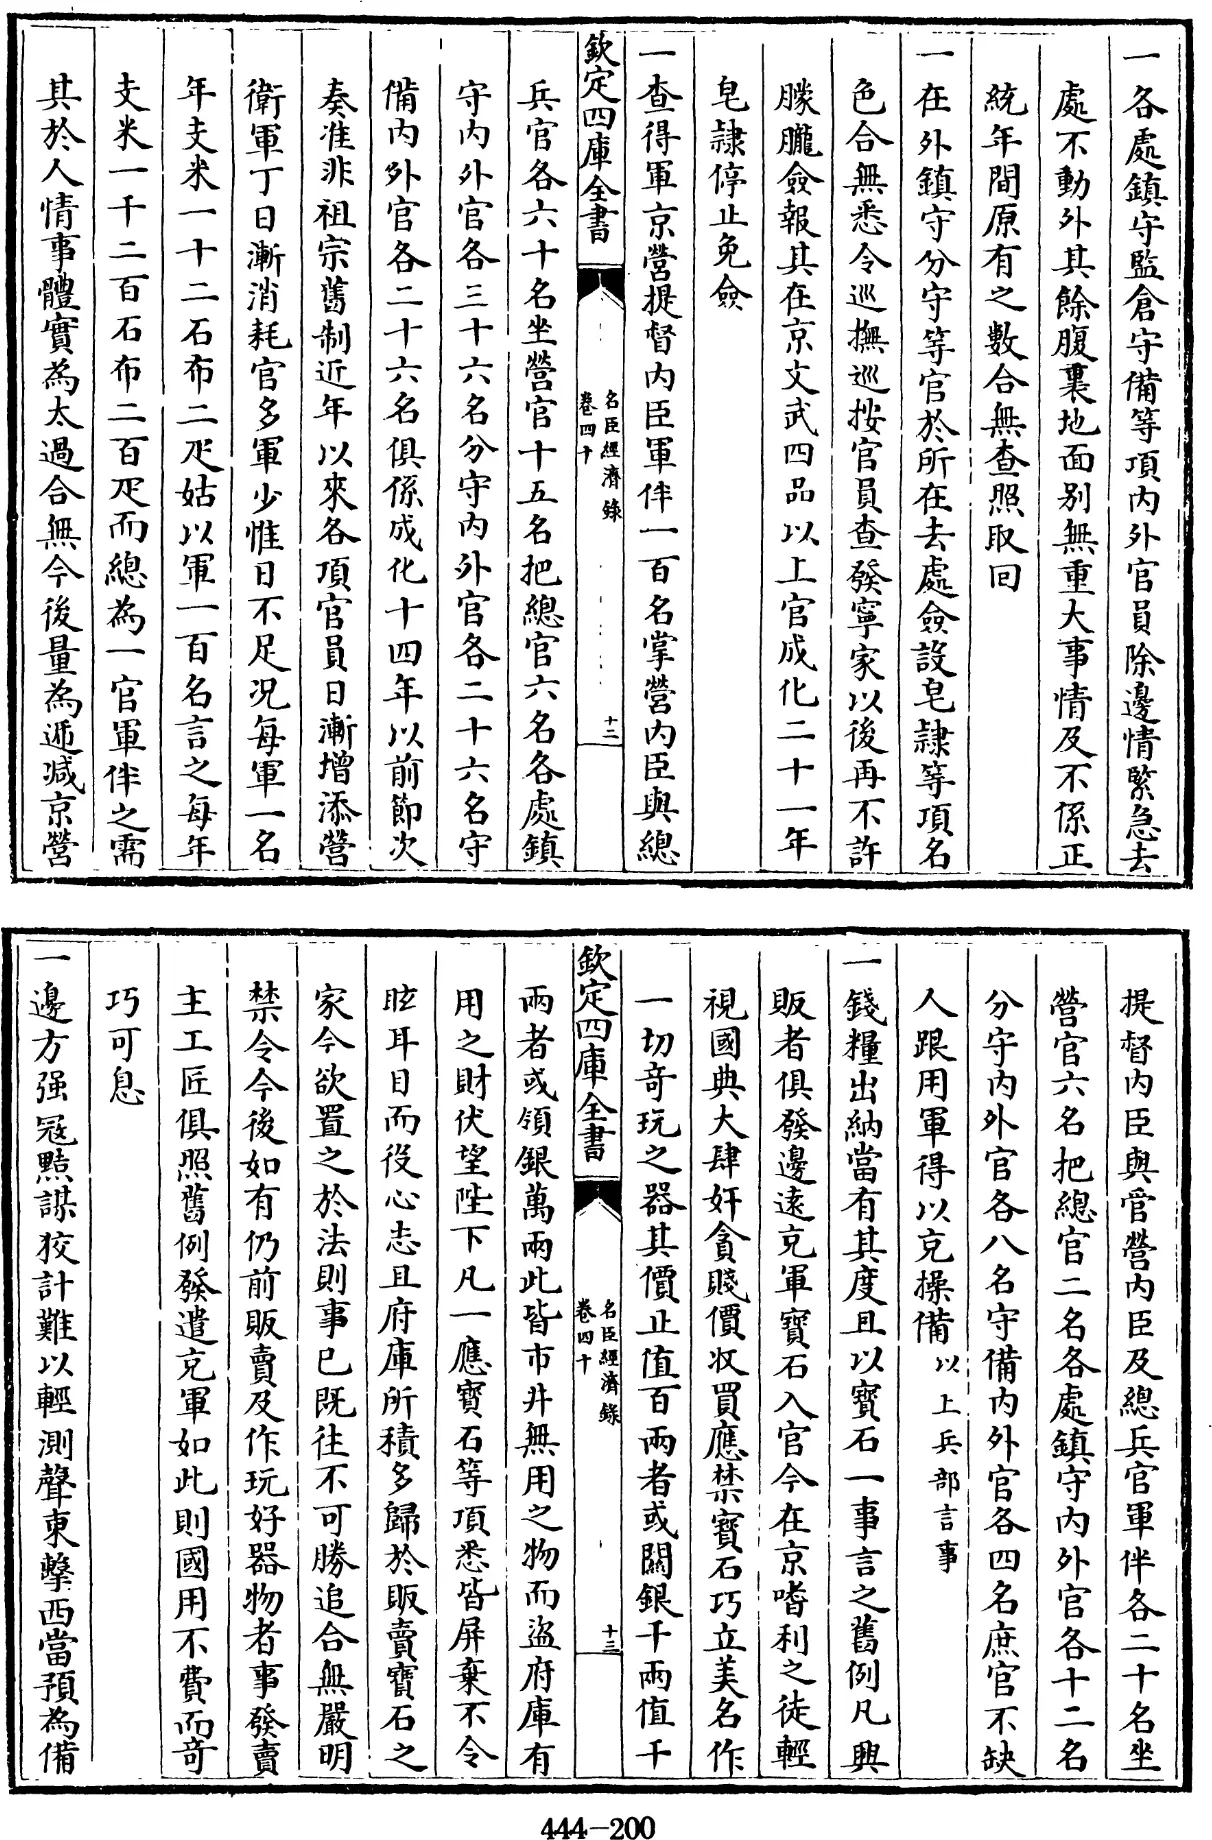 一各處鎮守監倉守備等項内外官員除邊情緊急去
處不動外其餘腹裏地面别無重大事情及不係正
統年間原有之數合無查照取回
一在外鎮守分守等官於所在去處僉設皂隷等項名
色合無悉令巡撫巡按官員查發寧家以後再不許
朦朧僉報其在京文武四品以上官成化二十一年
皂隷停止免僉
一查得軍京營提督内臣軍伴一百名掌營内臣與總
欽定四庫全書
名臣經濟錄
卷四十
十二
兵官各六十名坐營官十五名把總官六名各處鎮
守内外官各三十六名分守内外官各二十六名守
備内外官各二十六名俱係成化十四年以前節次
奏准非祖宗舊制近年以來各項官員日漸增添營
衛軍丁日漸消耗官多軍少惟日不足况每軍一名
年支米一十二石布二疋姑以軍一百名言之每年
支米一千二百石布二百疋而總為一官軍伴之需
其於人情事體實為太過合無今後量為遞減京營
提督内臣與管營内臣及總兵官軍伴各二十名坐
營官六名把總官二名各處鎮守内外官各十二名
分守内外官各八名守備内外官各四名庶官不缺
人跟用軍得以充操備以上兵部言事
一錢糧出納當有其度且以寶石一事言之舊例凡興
販者俱發邊遠充軍寶石入官今在京嗜利之徒輕
視國典大肆奸貪賤價收買應禁寶石巧立美名作
一切奇玩之器其價止值百兩者或關銀千兩值千
欽定四庫全書
名臣經濟錄
卷四十
十三
兩者或領銀萬兩此皆市井無用之物而盜府庫有
用之財伏望陛下凡一應寶石等項悉皆屏棄不令
眩耳目而役心志且府庫所積多歸於販賣寶石之
家今欲置之於法則事已既往不可勝追合無嚴明
禁令今後如有仍前販賣及作玩好器物者事發賣
主工匠俱照舊例發遣充軍如此則國用不費而奇
巧可息
一邊方强寇黠謀狡計難以輕測聲東擊西當預為備
444-200